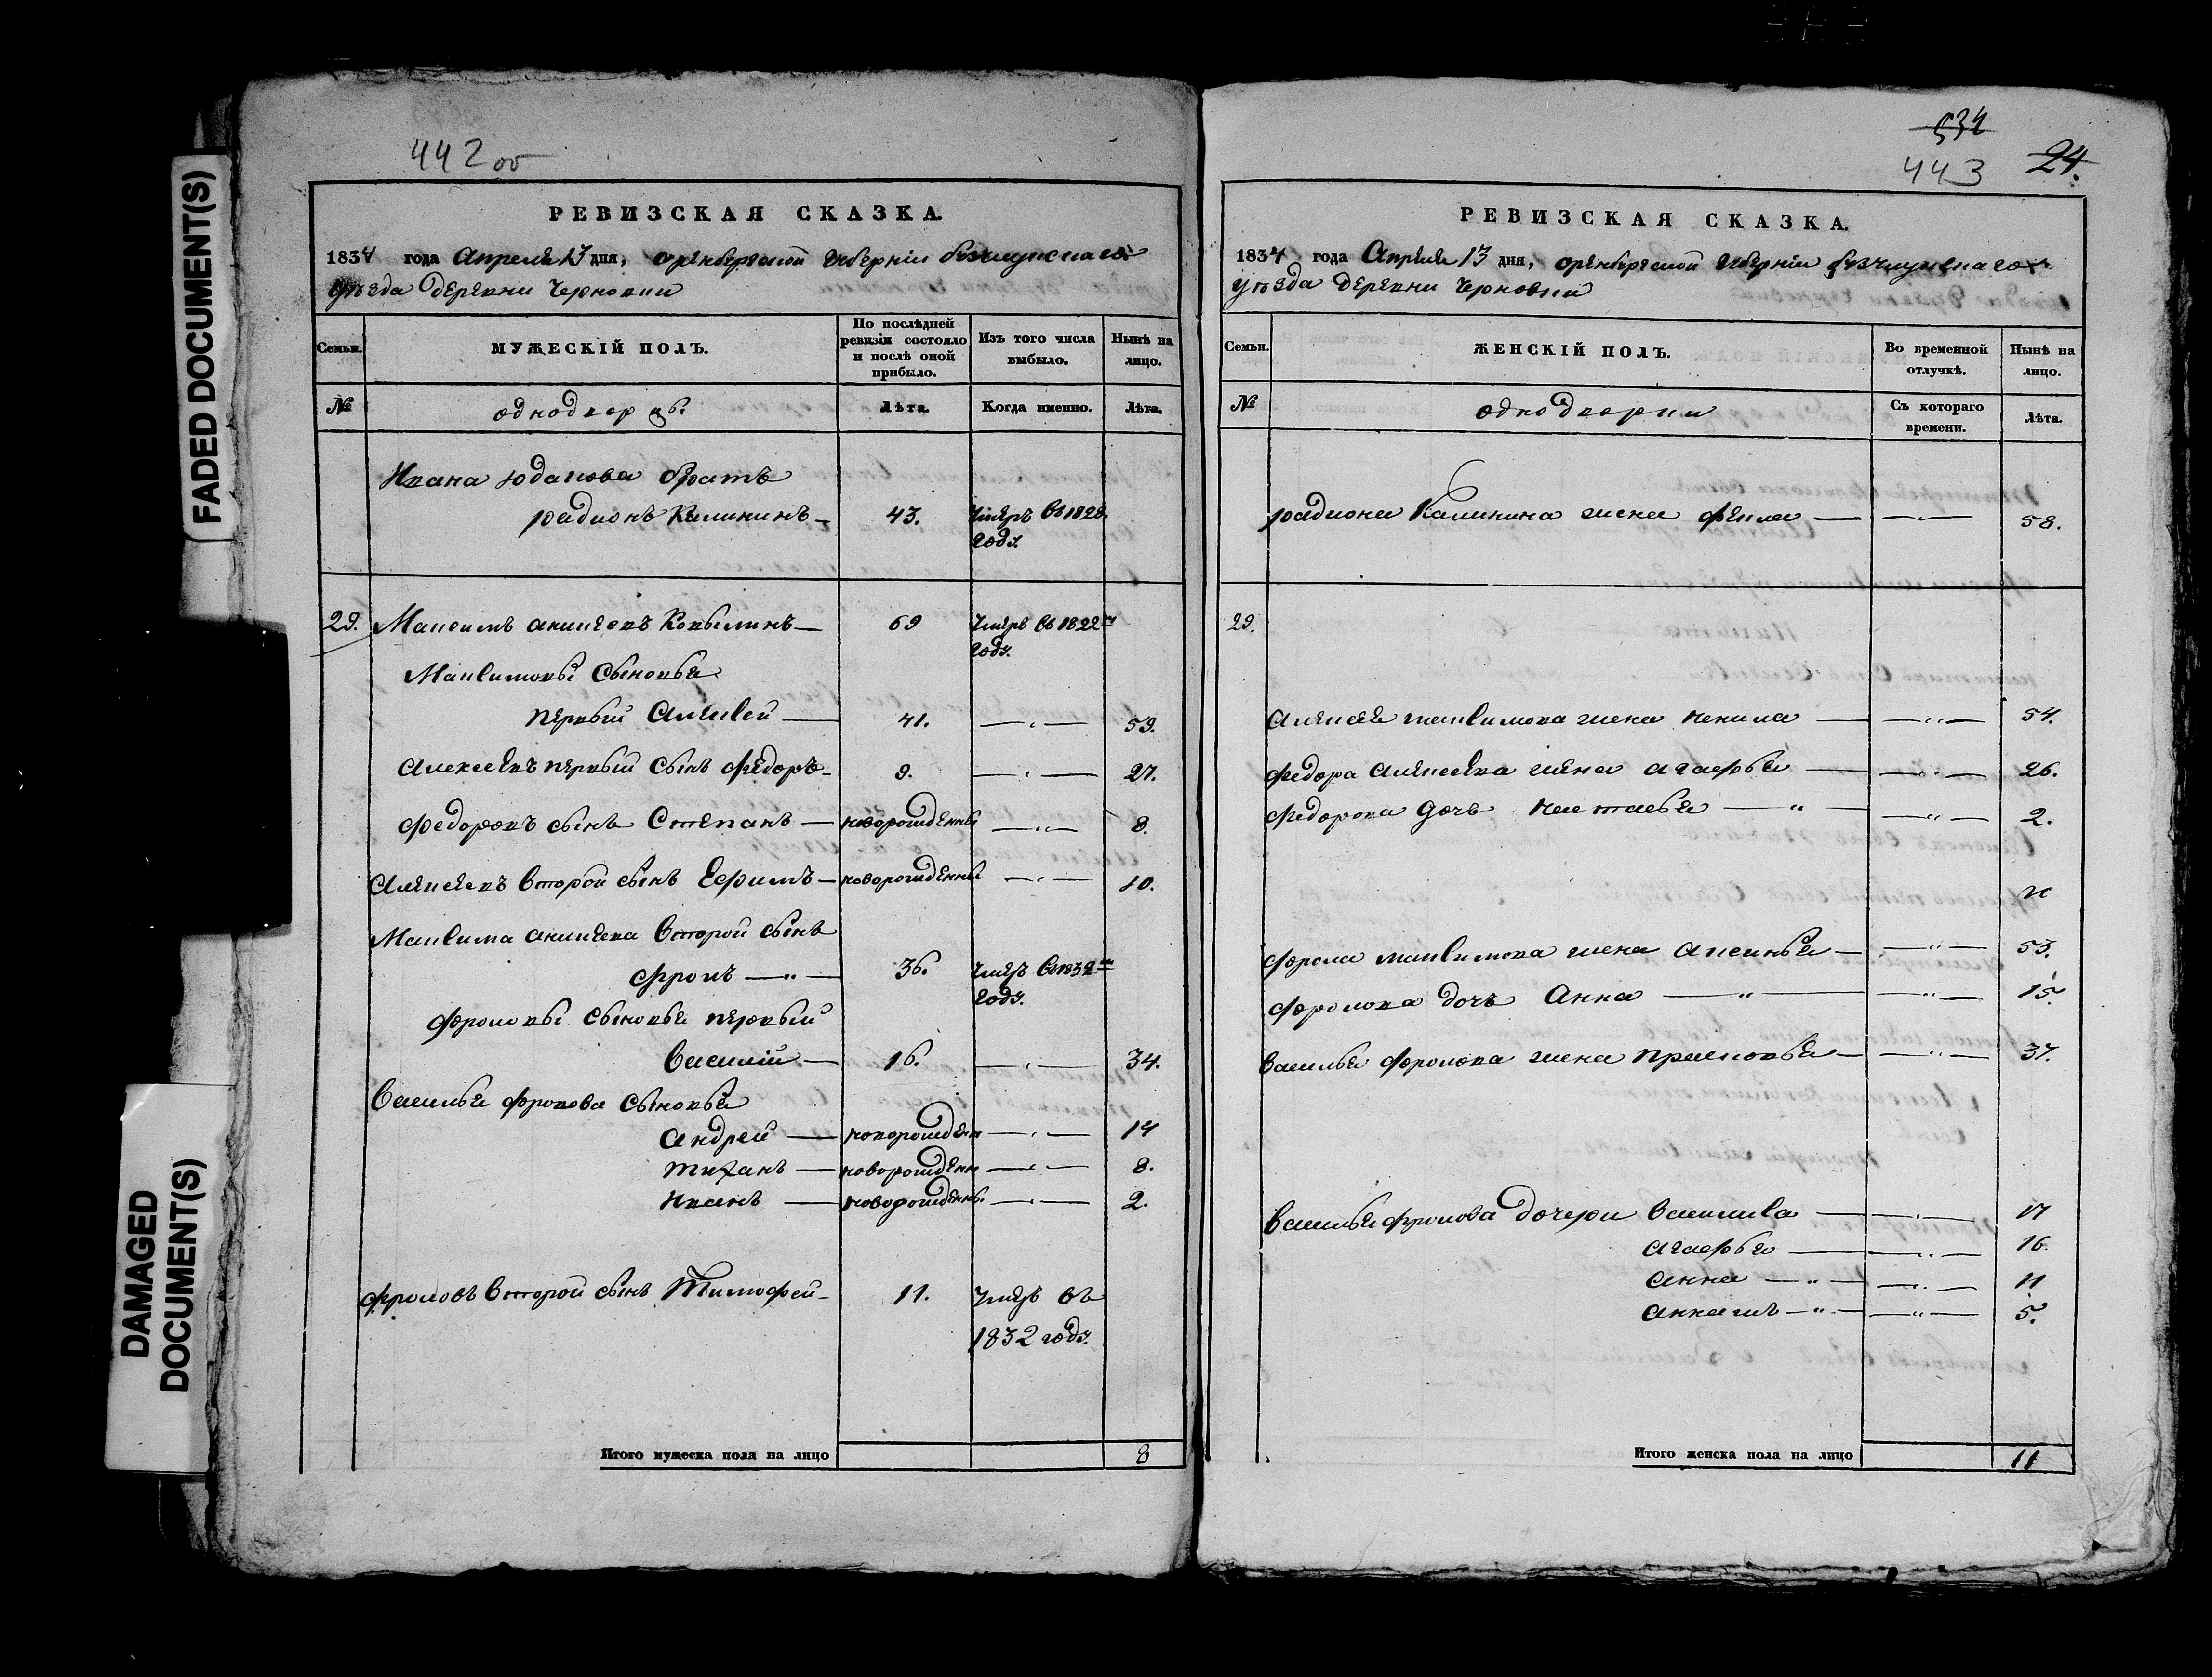 FADED DOCUMENT(S)
DAMAGED
DOCUMENT(S)
442 об
РЕВИЗСКАЯ СКАЗКА.
1834 года Апреля 13 дня, оренбергской губерніи бузулускаго
уѣзда деревни Черновки
Семьи. МУЖЕСКІЙ ПОЛЪ. По послѣдней ревизіи состояло и послѣ оной прибыло. Изъ того числа выбыло. Нынѣ на лицо.
№ однодворцы Лѣта. Когда именно. Лѣта.
Ивана юдакова братъ
радионъ Калининъ 43. Умеръ въ 1828. году.
29. Максимъ аникеевъ Ковылинъ 69 Умеръ въ 1822м году.
Максимовы сыновья
первый Алексей 41. — " — 59.
Алексеевъ первый сынъ Федоръ 9. — " — 27.
Федоровъ сынъ Степанъ новорожденны — " — 8.
Алексеевъ второй сынъ Ефимъ новорожденны — " — 10.
Максима аникеева второй сынъ
фролъ — " — 36. умеръ въ 1832м году.
фроловы сыновья первый
василій 16. — " — 34.
василья фролова сыновья
андрей новорожден — " — 14
тиханъ новорожден — " — 8.
иванъ новорожденны. — " — 2.
фроловъ второй сынъ Тимофей 11. умеръ въ 1832 году.
Итого мужеска пола на лицо 8
534
443 24.
РЕВИЗСКАЯ СКАЗКА.
1834 года Апреля 13 дня, оренбергской губерніи бузулускаго
уѣзда деревни Черновки
Семьи. ЖЕНСКІЙ ПОЛЪ. Во временной отлучкѣ. Нынѣ на лицо.
№ однодворки Съ котораго времени. Лѣта.
радиона Калинина жена фекла — " — 58.
29.
Алексея максимова жена ненила — " — 54.
федора алексеева жена агафья — " — 26.
федорова дочь настасья — " — — " — 2.
фрола максимова жена аксинья — " — 53.
фролова дочь Анна — " — — " — 15.
василья фролова жена прасковья — " — 37.
василья фролова дочери василиса — " — 17
агафья — " — 16.
анна — " — — " — 11
— " — — " — 5.
Итого женска пола на лицо 11